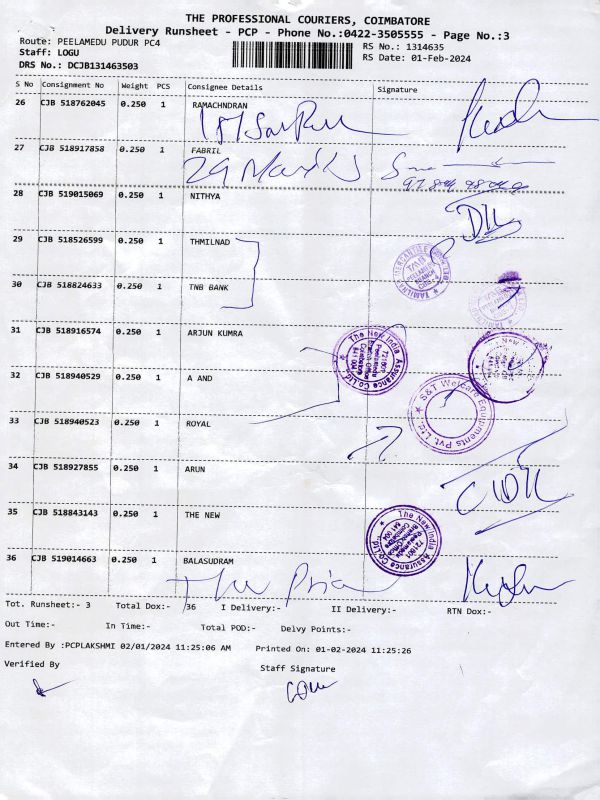 THE PROFESSIONAL COURIERS, COIMBATORE
Delivery Runsheet - PCP - Phone No.:0422-3505555 - Page No.:3
Route: PEELAMEDU PUDUR PC4
RS No.: 1314635
Staff: LOGU
RS Date: 01-Feb-2024
DRS No.: DCJB131463503
S No Consignment No Weight PCS Consignee Details Signature
26 CJB 518762045 0.250 1 RAMACHNDRAN
27 CJB 518917858 0.250 1 FABRIL
29
28 CJB 519015069 0.250 1 NITHYA
29 CJB 518526599 0.250 1 THMILNAD
30 CJB 518824633 0.250 1 TNB BANK
31 CJB 518916574 0.250 1 ARJUN KUMRA
The New India Assurance Co.Ltd.
32 CJB 518940529 0.250 1 A AND
S&T Welcare Equipments Pvt. Ltd.
33 CJB 518940523 0.250 1 ROYAL
34 CJB 518927855 0.250 1 ARUN
35 CJB 518843143 0.250 1 THE NEW
The New India Assurance Co.Ltd.
36 CJB 519014663 0.250 1 BALASUDRAM
Tot. Runsheet:- 3 Total Dox:- /36 I Delivery:- II Delivery:- RTN Dox:-
Out Time:- In Time:- Total POD:- Delvy Points:-
Entered By :PCPLAKSHMI 02/01/2024 11:25:06 AM Printed On: 01-02-2024 11:25:26
Verified By Staff Signature